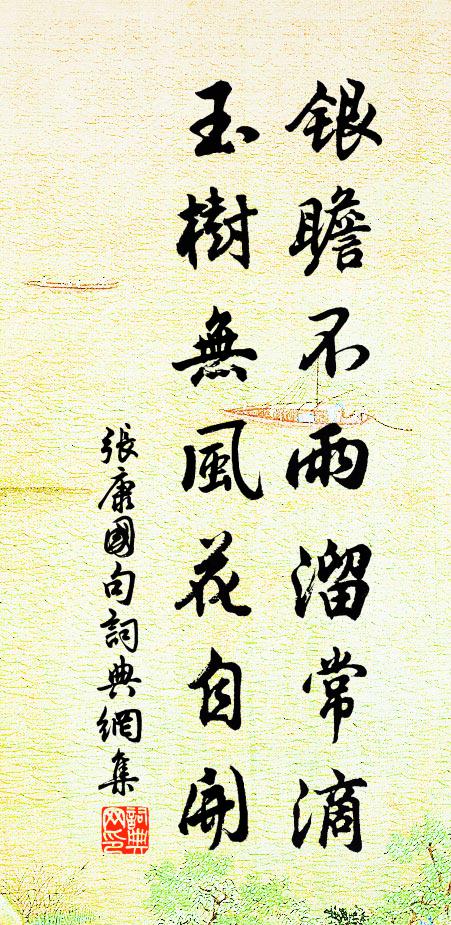 銀瞻不雨溜常滴
玉樹無風花自開
張康國句詞典網集
詞典网印